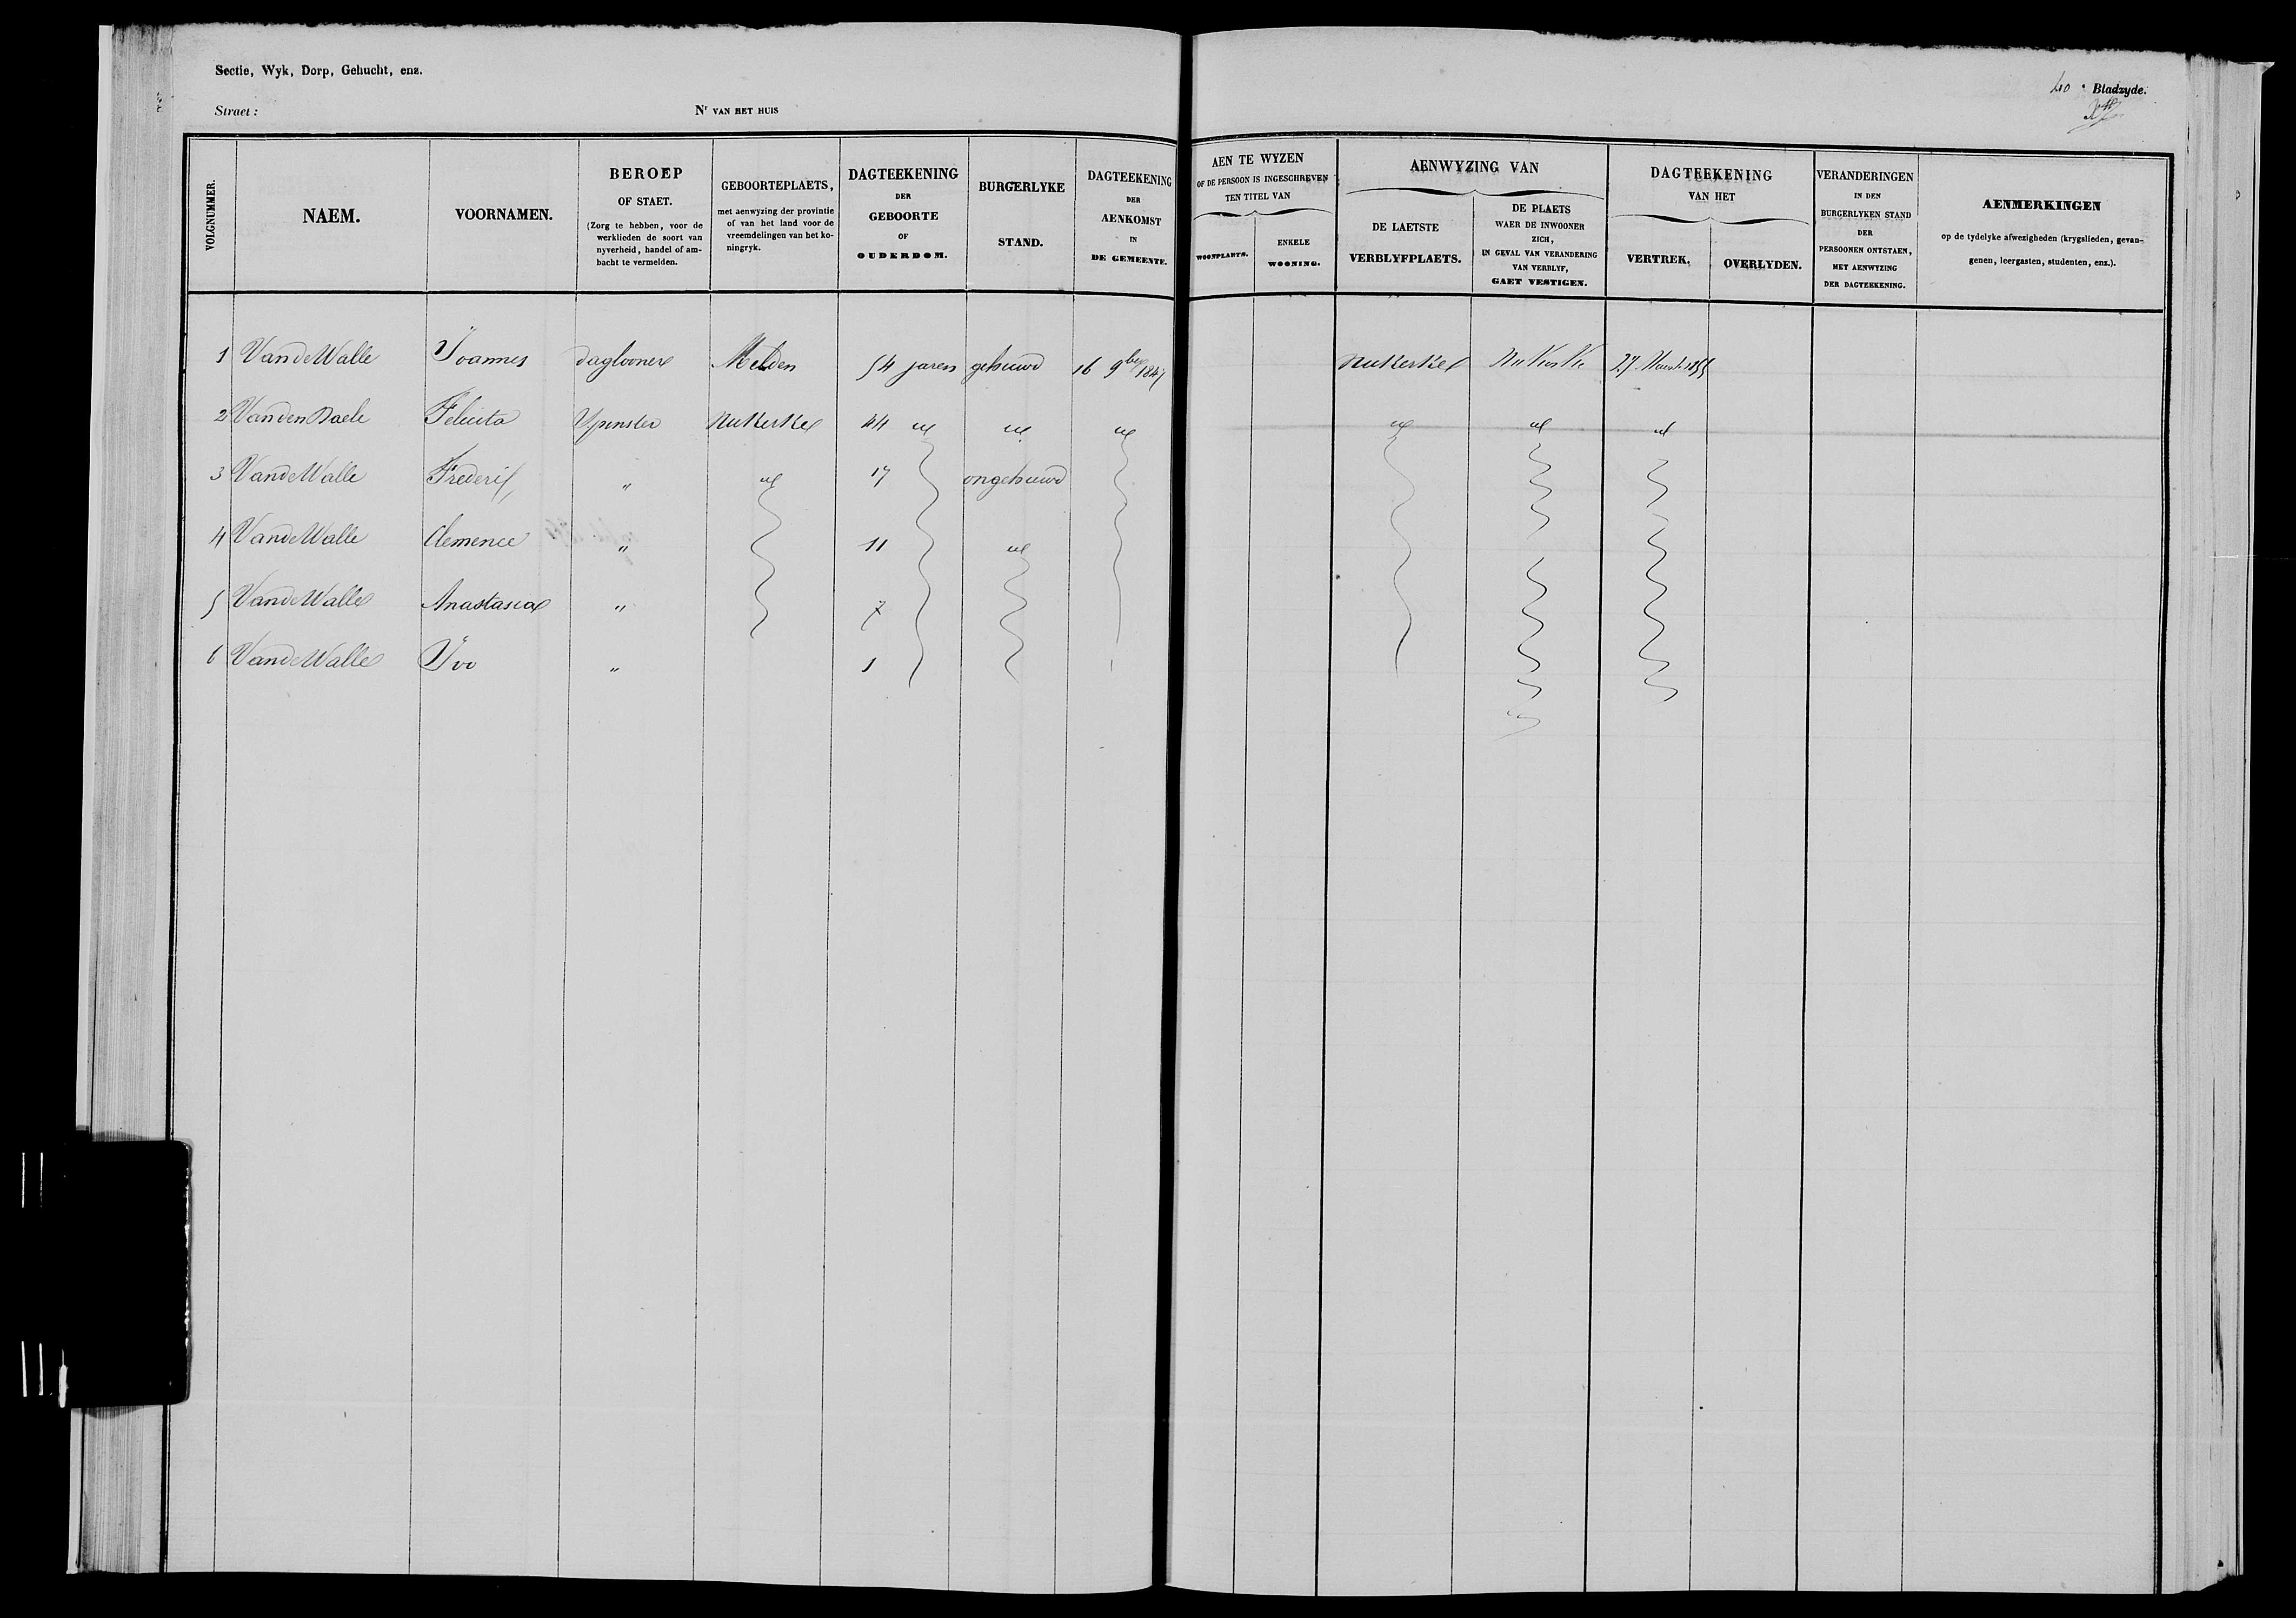 Sectie, Wyk, Dorp, Gehucht, enz.
Straet : Nr VAN HET HUIS
40 e Bladzyde.
VOLGNUMMER.
NAEM.
VOORNAMEN.
BEROEP
OF STAET.
(Zorg te hebben, voor de
werklieden de soort van
nyverheid, handel of am-
bacht te vermelden.
GEBOORTEPLAETS,
met aenwyzing der provintie
of van het land voor de
vreemdelingen van het ko-
ningryk.
DAGTEEKENING
DER
GEBOORTE
OF
OUDERDOM.
BURGERLYKE
STAND.
DAGTEEKENING
DER
AENKOMST
IN
DE GEMEENTE.
AEN TE WYZEN
OF DE PERSOON IS INGESCHREVEN
TEN TITEL VAN
WOONPLAETS.
ENKELE
WOONING.
AENWYZING VAN
DE LAETSTE
VERBLYFPLAETS.
DE PLAETS
WAER DE INWOONER
ZICH,
IN GEVAL VAN VERANDERING
VAN VERBLYF,
GAET VESTIGEN.
DAGTEEKENING
VAN HET
VERTREK.
OVERLYDEN.
VERANDERINGEN
IN DEN
BURGERLYKEN STAND
DER
PERSOONEN ONTSTAEN,
MET AENWYZING
DER DAGTEEKENING.
AENMERKINGEN
op de tydelyke afwezigheden (krygslieden, gevan-
genen, leergasten, studenten, enz.).
1 VandeWalle Joannes daglooner Melden 54 jaren gehuwd 16 9ber 1847 Nukerke Nukerke 27 1855
2 VandenDaele Felicita Spinster Nukerke 44 id id id id id id
3 VandeWalle Frederik " id 17 ongehuwd
4 VandeWalle Clemence " 11 id
5 VandeWalle Anastasia " 7
6 VandeWalle Ivo " 1